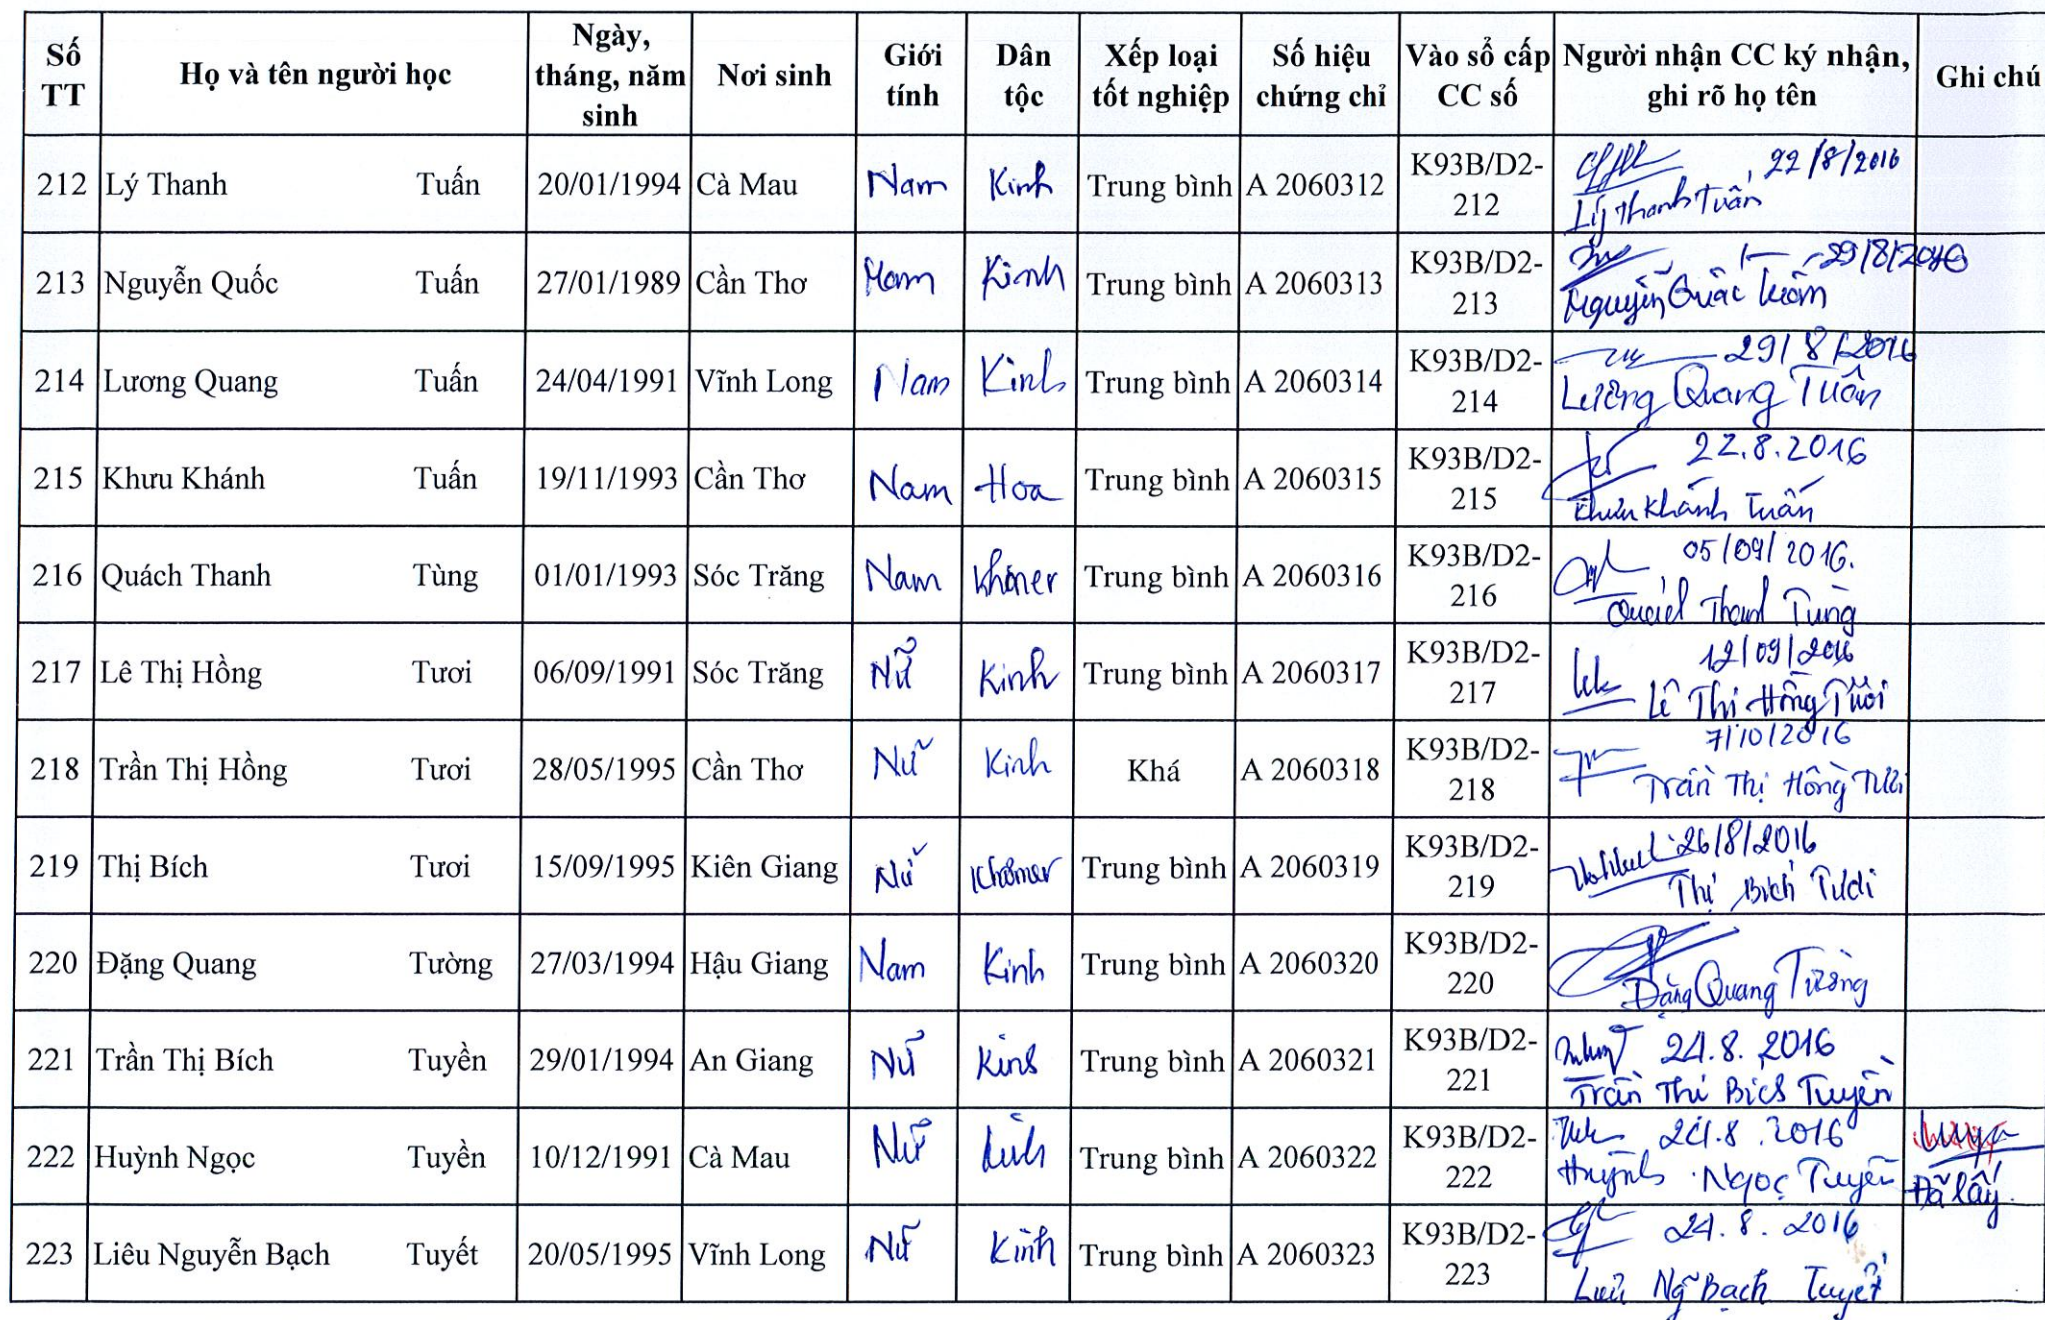 Số TT Họ và tên người học Ngày, tháng, năm sinh Nơi sinh Giới tính Dân tộc Xếp loại tốt nghiệp Số hiệu chứng chỉ Vào sổ cấp CC số Người nhận CC ký nhận, ghi rõ họ tên Ghi chú
212 Lý Thanh Tuấn 20/01/1994 Cà Mau Nam Kinh Trung bình A 2060312 K93B/D2-212 22/8/2016 Lý Thanh Tuấn
213 Nguyễn Quốc Tuấn 27/01/1989 Cần Thơ Nam Kinh Trung bình A 2060313 K93B/D2-213 29/8/2016 Nguyễn Quốc Tuấn
214 Lương Quang Tuấn 24/04/1991 Vĩnh Long Nam Kinh Trung bình A 2060314 K93B/D2-214 29/8/2016 Lương Quang Tuấn
215 Khưu Khánh Tuấn 19/11/1993 Cần Thơ Nam Hoa Trung bình A 2060315 K93B/D2-215 22.8.2016 Khưu Khánh Tuấn
216 Quách Thanh Tùng 01/01/1993 Sóc Trăng Nam Khơmer Trung bình A 2060316 K93B/D2-216 05/09/2016. Quách Thanh Tùng
217 Lê Thị Hồng Tươi 06/09/1991 Sóc Trăng Nữ Kinh Trung bình A 2060317 K93B/D2-217 12/09/2016 Lê Thị Hồng Tươi
218 Trần Thị Hồng Tươi 28/05/1995 Cần Thơ Nữ Kinh Khá A 2060318 K93B/D2-218 7/10/2016 Trần Thị Hồng Tươi
219 Thị Bích Tươi 15/09/1995 Kiên Giang Nữ Khơmer Trung bình A 2060319 K93B/D2-219 26/8/2016 Thị Bích Tươi
220 Đặng Quang Tường 27/03/1994 Hậu Giang Nam Kinh Trung bình A 2060320 K93B/D2-220 Đặng Quang Tường
221 Trần Thị Bích Tuyền 29/01/1994 An Giang Nữ Kinh Trung bình A 2060321 K93B/D2-221 24.8.2016 Trần Thị Bích Tuyền
222 Huỳnh Ngọc Tuyền 10/12/1991 Cà Mau Nữ Kinh Trung bình A 2060322 K93B/D2-222 24.8.2016 Huỳnh Ngọc Tuyền Đã lấy.
223 Liêu Nguyễn Bạch Tuyết 20/05/1995 Vĩnh Long Nữ Kinh Trung bình A 2060323 K93B/D2-223 24.8.2016 Liêu Ng̃ Bạch Tuyết